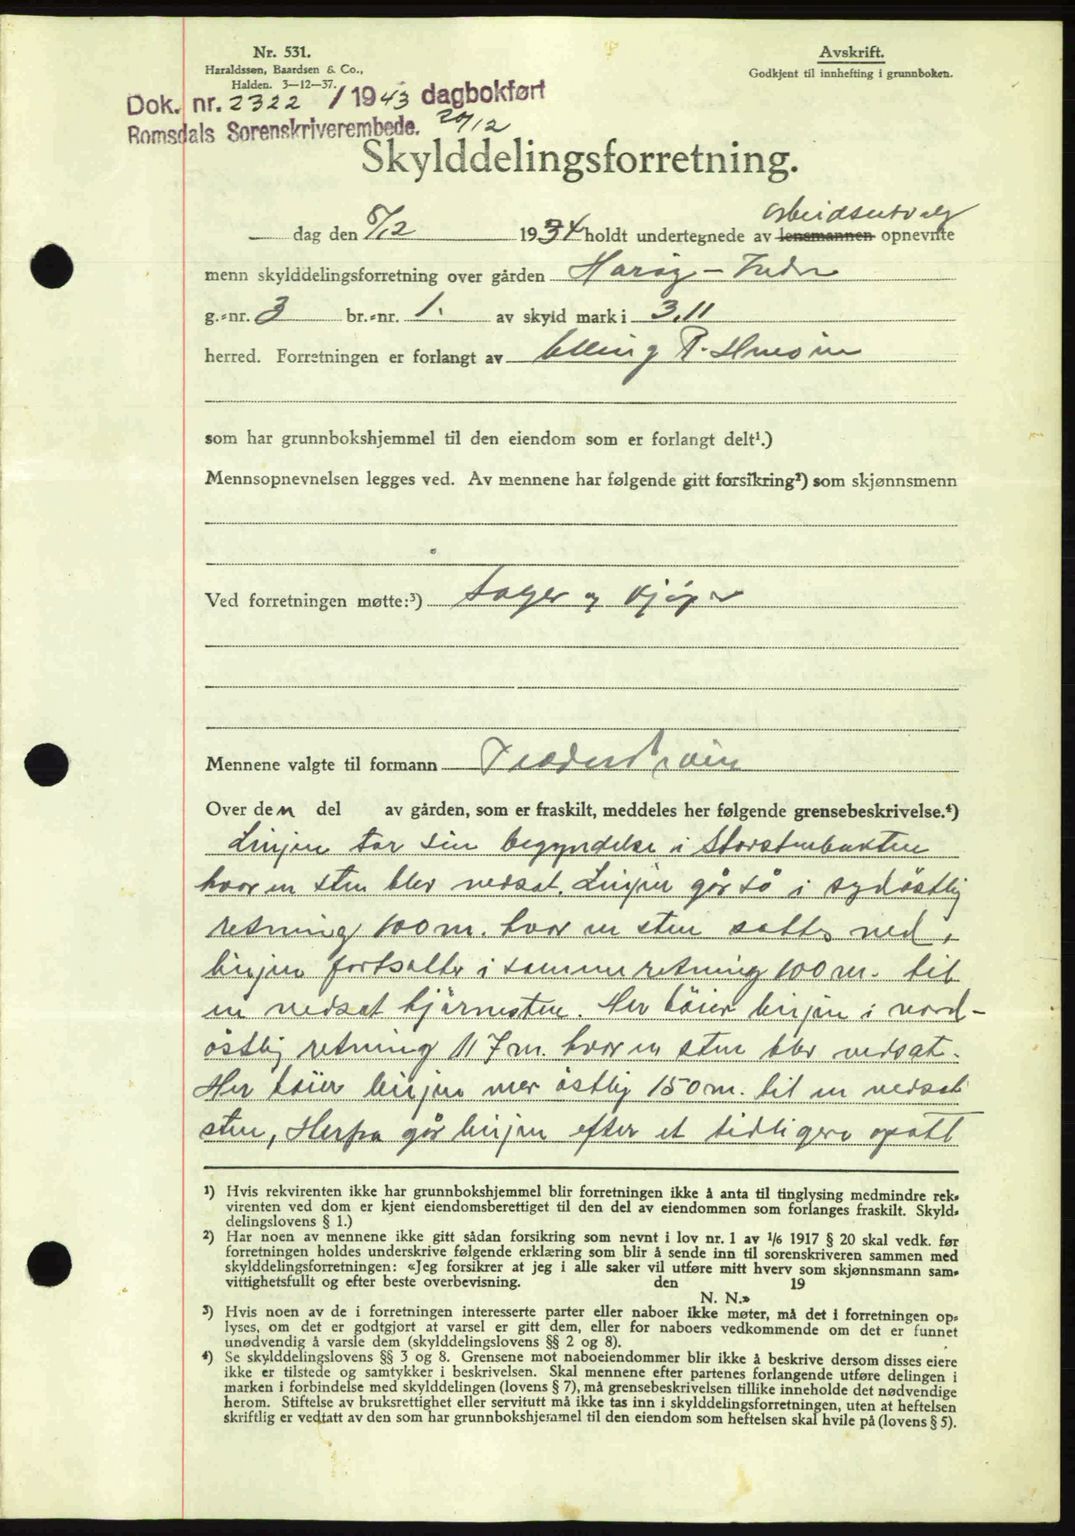 Nr. 531.
Haraldssen, Baardsen & Co.,
Halden. 3—12—37.
Avskrift.
Godkjent til innhefting i grunnboken.
Dok. nr. 2322 / 1943 dagbokført
Romsdals Sorenskriverembede. 20/12
Skylddelingsforretning.
arbeidsutvalg
dag den 5/12 1934 holdt undertegnede av lensmannen opnevnte
menn skylddelingsforretning over gården Harøy — Indre
g.-nr. 3 br.-nr. 1. av skyld mark i 3,11
herred. Forretningen er forlangt av Elling P.
som har grunnbokshjemmel til den eiendom som er forlangt delt¹.)
Mennsopnevnelsen legges ved. Av mennene har følgende gitt forsikring²) som skjønnsmenn
Ved forretningen møtte:³) Sælger og kjøper
Mennene valgte til formann
Over den del av gården, som er fraskilt, meddeles her følgende grensebeskrivelse.⁴)
Linjen tar sin begyndelse i Storstenbukten
hvor en sten blev nedsat. Linjen går så i sydöstlig
retning 100 m. hvor en sten sattes ned,
linjen fortsatte i samme retning 100 m. til
en nedsat hjörnesten. Her böier linjen i nord-
östlig retning 117 m. hvor en sten blev nedsat.
Her böier linjen mer östlig 150 m. til en nedsat
sten, Herfra går linjen efter et tidligere opsatt
¹) Hvis rekvirenten ikke har grunnbokshjemmel blir forretningen ikke å anta til tinglysing medmindre rek-
virenten ved dom er kjent eiendomsberettiget til den del av eiendommen som forlanges fraskilt. Skyld-
delingslovens § 1.)
²) Har noen av mennene ikke gitt sådan forsikring som nevnt i lov nr. 1 av ¹/₆ 1917 § 20 skal vedk. før
forretningen holdes underskrive følgende erklæring som blir å sende inn til sorenskriveren sammen med
skylddelingsforretningen: «Jeg forsikrer at jeg i alle saker vil utføre mitt hverv som skjønnsmann sam-
vittighetsfullt og efter beste overbevisning. den 19
N. N.»
³) Hvis noen av de i forretningen interesserte parter eller naboer ikke møter, må det i forretningen op-
lyses, om det er godtgjort at varsel er gitt dem, eller for naboers vedkommende om det er funnet
unødvendig å varsle dem (skylddelingslovens §§ 2 og 8).
⁴) Se skylddelingslovens §§ 3 og 8. Grensene mot naboeiendommer blir ikke å beskrive dersom disses eiere
ikke er tilstede og samtykker i beskrivelsen. Skal mennene efter partenes forlangende utføre delingen i
marken i forbindelse med skylddelingen (lovens § 7), må grensebeskrivelsen tillike inneholde det nødvendige
herom. Stiftelse av bruksrettighet eller servitutt må ikke tas inn i skylddelingsforretningen, uten at heftelsen
skriftlig er vedtatt av den som har grunnbokshjemmel til den eiendom som heftelsen skal hvile på (lovens § 5).